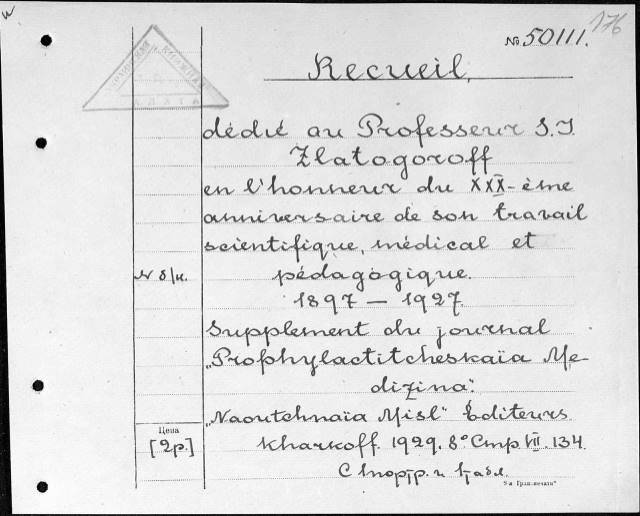 176
№ 50111.
Recueil,
dédié au Professeur S.I.
Zlatogoroff
en l'honneur du XXX-ème
anniversaire de son travail
scientifique, médical et
N б/н.
pédagogique.
1897 — 1927.
Supplement du journal
„Prophylactitcheskaïa Me-
dizina".
„Naoutchnaïa Misl" Éditeurs.
Цена
[2р.]
Kharkoff. 1929. 8° Стр. VII. 134.
С 1 портр. и табл.